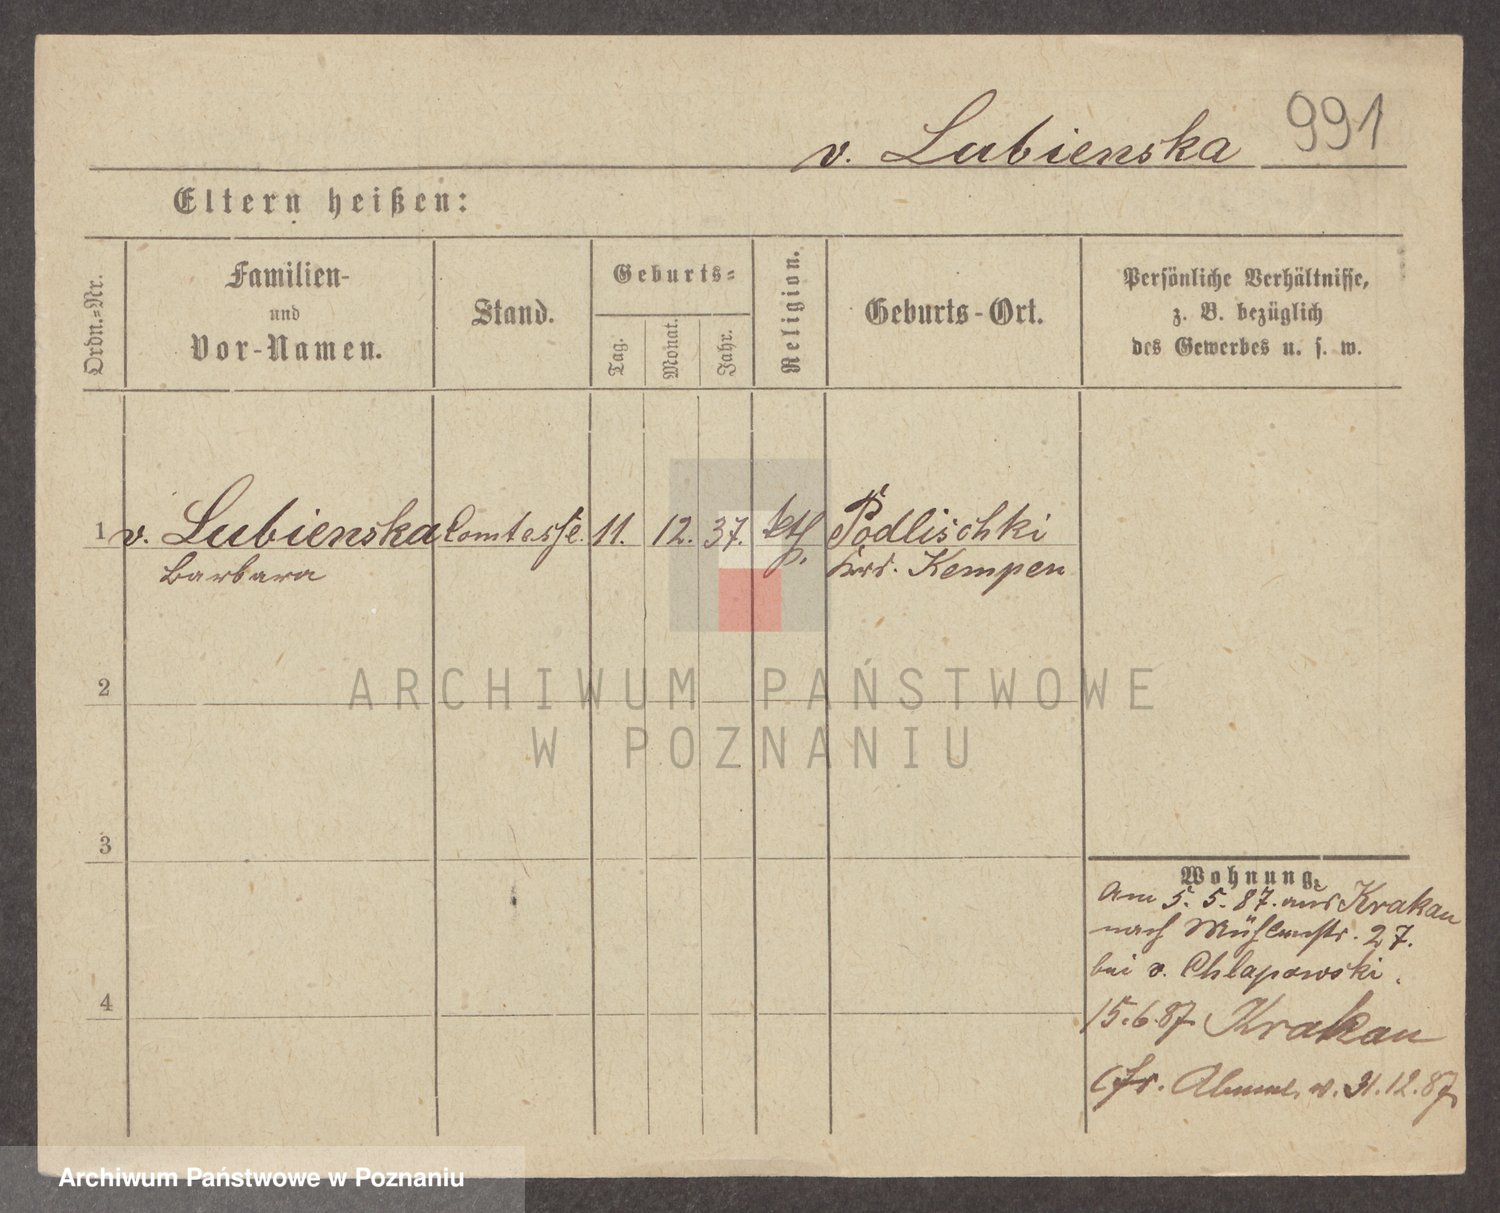 v. Lubienska 991
Eltern heißen:
Ordn.-Nr.
Familien-
und
Vor-Namen.
Stand.
Geburts-
Tag.
Monat.
Jahr.
Religion.
Geburts-Ort.
Persönliche Verhältnisse,
z. B. bezüglich
des Gewerbes u. s. w.
1 v. Lubienska Comtesse. 11. 12. 37. kth. Podlischki
Barbara Krs. Kempen
2
ARCHIWUM PAŃSTWOWE
W POZNANIU
3
Wohnung.
Am 5. 5. 87. aus Krakau
nach Mühlenstr. 27.
bei v. Chlapowski.
4
15.6.87 Krakau
v. 31.12.87
Archiwum Państwowe w Poznaniu